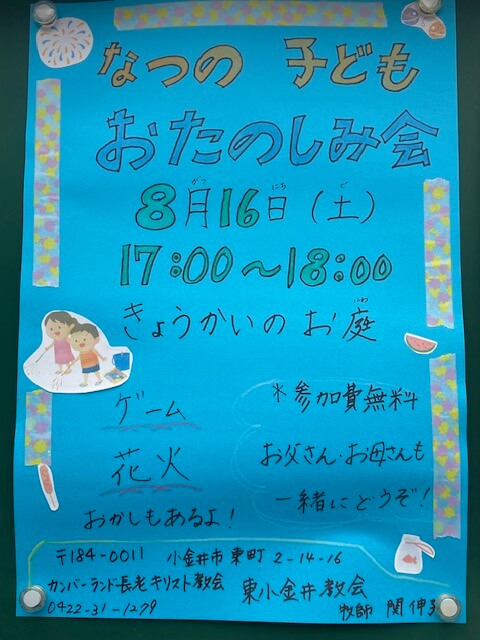 なつの 子ども
おたのしみ会
8月16日(土)
がつ にち ど
17:00〜18:00
きょうかいのお庭
にわ
ゲーム
花火
おかしもあるよ!
*参加費無料
お父さん・お母さんも
一緒にどうぞ!
〒184-0011 小金井市東町2-14-16
カンバーランド長老キリスト教会 東小金井教会
0422-31-1279 牧師 関 伸